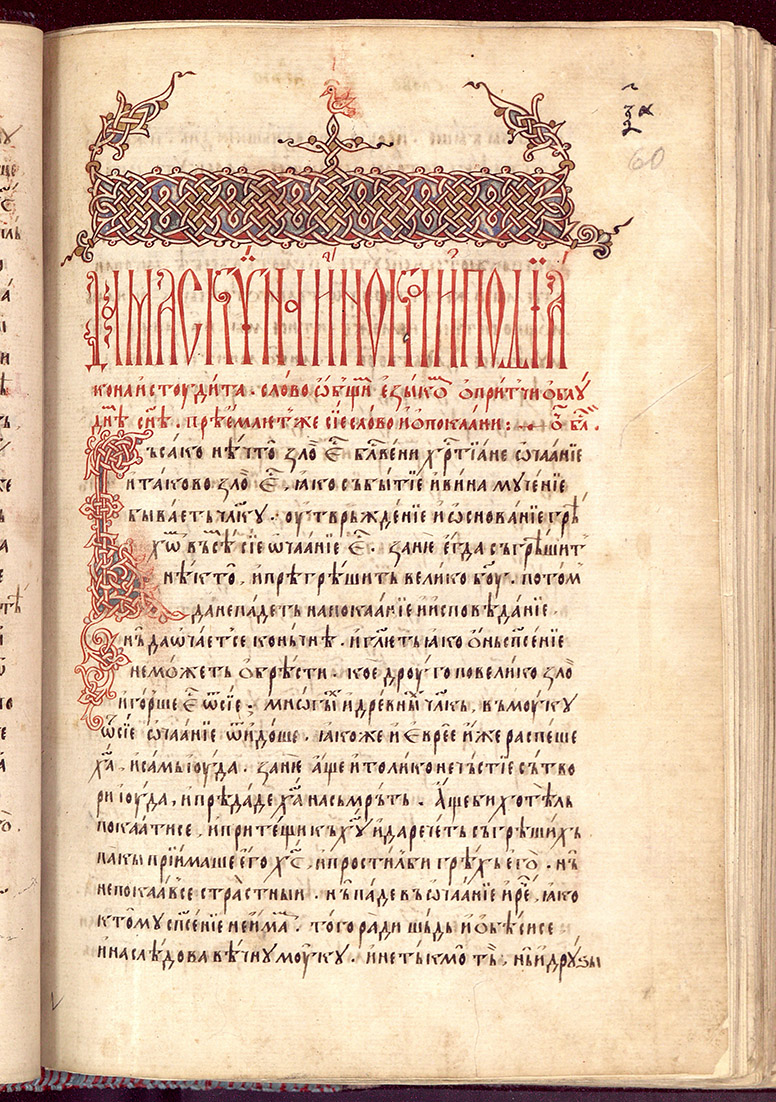 60
Дамаскѵна инока и ѵподїа
кона и стоудита. слово ѡбщїи езыкѡ о притчи облу
днѣ сн҃ѣ. прѣемлет же сїе слово и о покаани: ѿ бл҃.
Въсако нѣчто зло е҇ бл҃вени хр҇тїане ѡчаанїе
и таково зло е҇, ꙗко събытїе и вина мученїе
бываетъ чл҃ку. оутвръжденїе и ѡснованїе грѣ
хѡ въсѣ сїе ѡчаанїе е҇. зане егда съгрѣшит
нѣкто, и прѣгрѣшить велико б҃оу. потом
да не падеть на покаанїе и исповѣданїе.
нь да ѡчаетсе конъчнѣ. и гл҃еть ꙗко онъ сп҃сенїе
не можеть обрѣсти. кое дроуго по велико зло
и горше е҇ ѿ сїе. мнѡгыи и древныи чл҃къ, въ моуку
ѿ сїе ѡчаанїе ѿидоше. ꙗкоже и еврее иже распеше
х҃а, и самь їоуда. зане аще и толико нечьстїе сътво
ри їоуда, и прѣдаде х҃а на съмрьть. аще би хотѣль
покаатисе, и притещи къ х҃у и да речеть съгрѣшихъ
пакы прїимаше его х҇с, и простиль би грѣхъ его. нь
не покаавсе страстныи. нь паде въ ѡчаанїе и рѐ, ꙗко
к томꙋ сп҃сенїе не има. того ради шьдь и обѣсисе
и наслѣдова вѣчну моуку. и не тькмо тъ, нь и друѕы